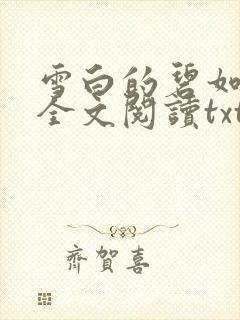 雪白的碧如
全文閱讀txt
齊賀喜